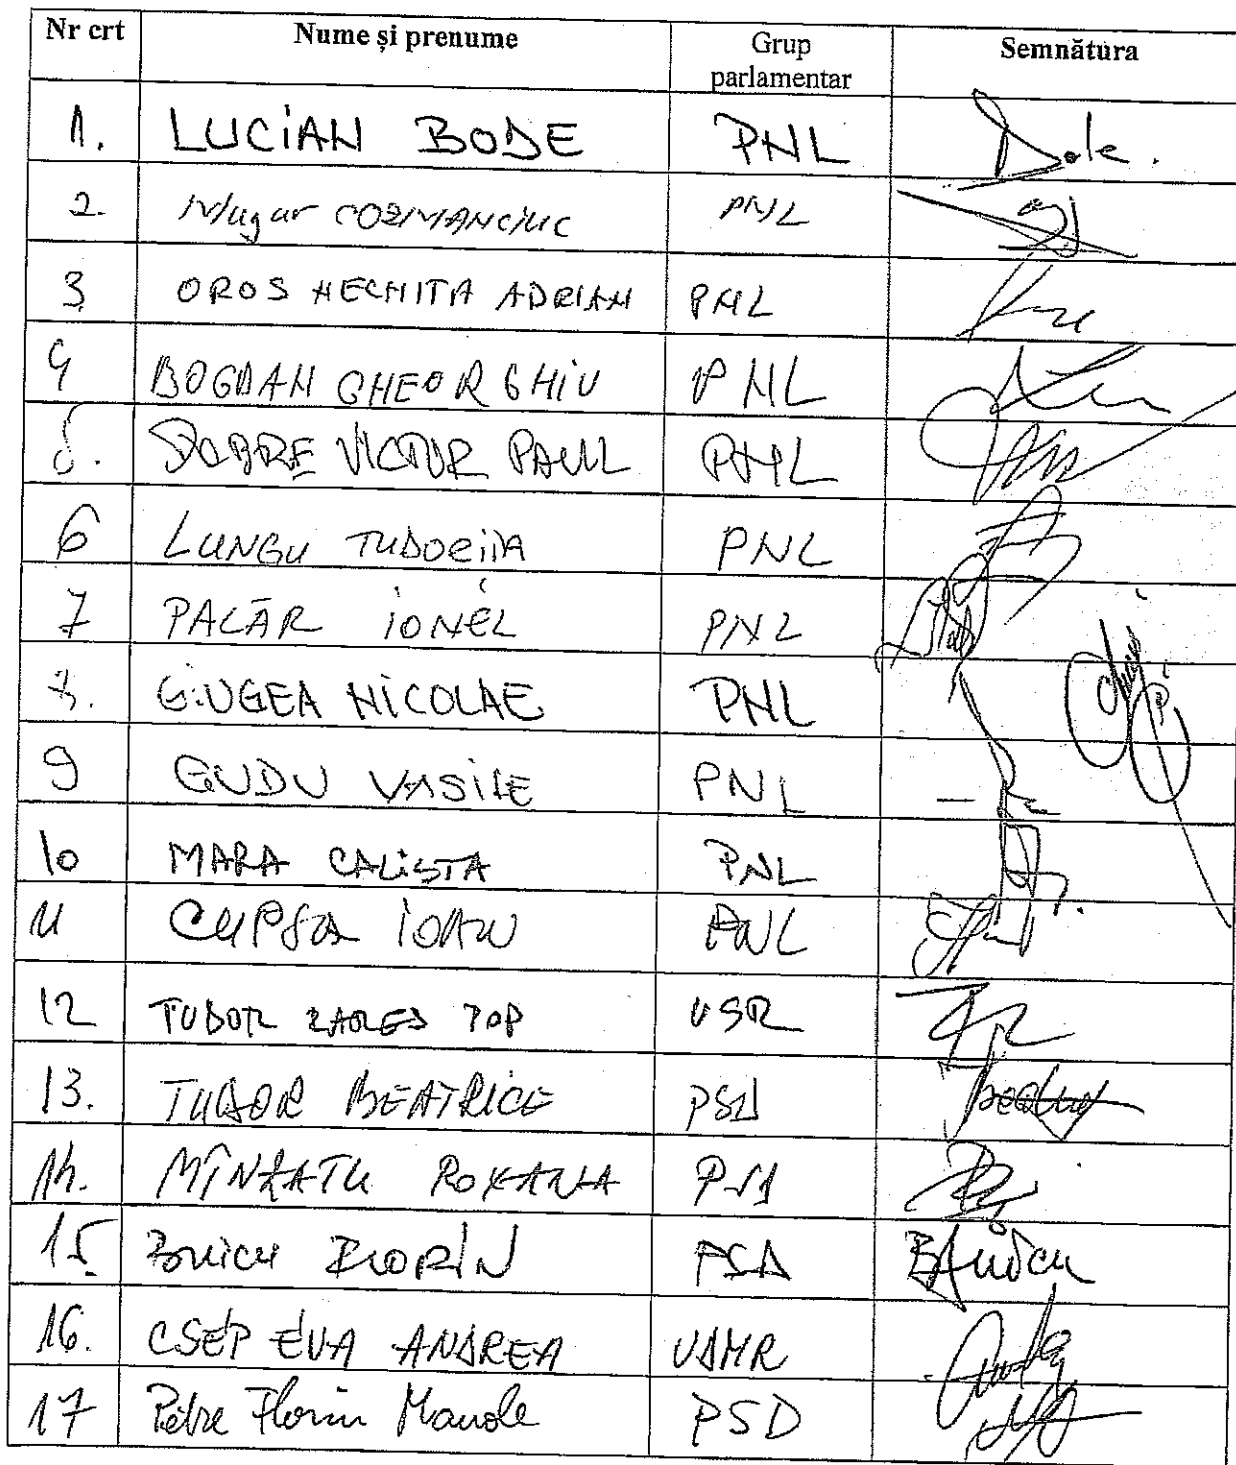 Nr crt Nume și prenume Grup parlamentar Semnătura
1. LUCIAN BODE PNL
2. Mugur COZMANCIUC PNL
3 OROS NECHITA ADRIAN PNL
4 BOGDAN GHEORGHIU PNL
5. DOBRE VICTOR PAUL PNL
6 LUNGU TUDORIȚA PNL
7 PALĂR IONEL PNL
8. GIUGEA NICOLAE PNL
9 GUDU VASILE PNL
10 MARA CALISTA PNL
11 CUPȘA IOAN PNL
12 TUDOR RAREȘ POP USR
13. TUDOR BEATRICE PSD
14. MÎNZATU ROXANA PSD
15. BUICU FLORIN PSD
16. CSEP EVA ANDREA UDMR
17 Petre Florin Manole PSD